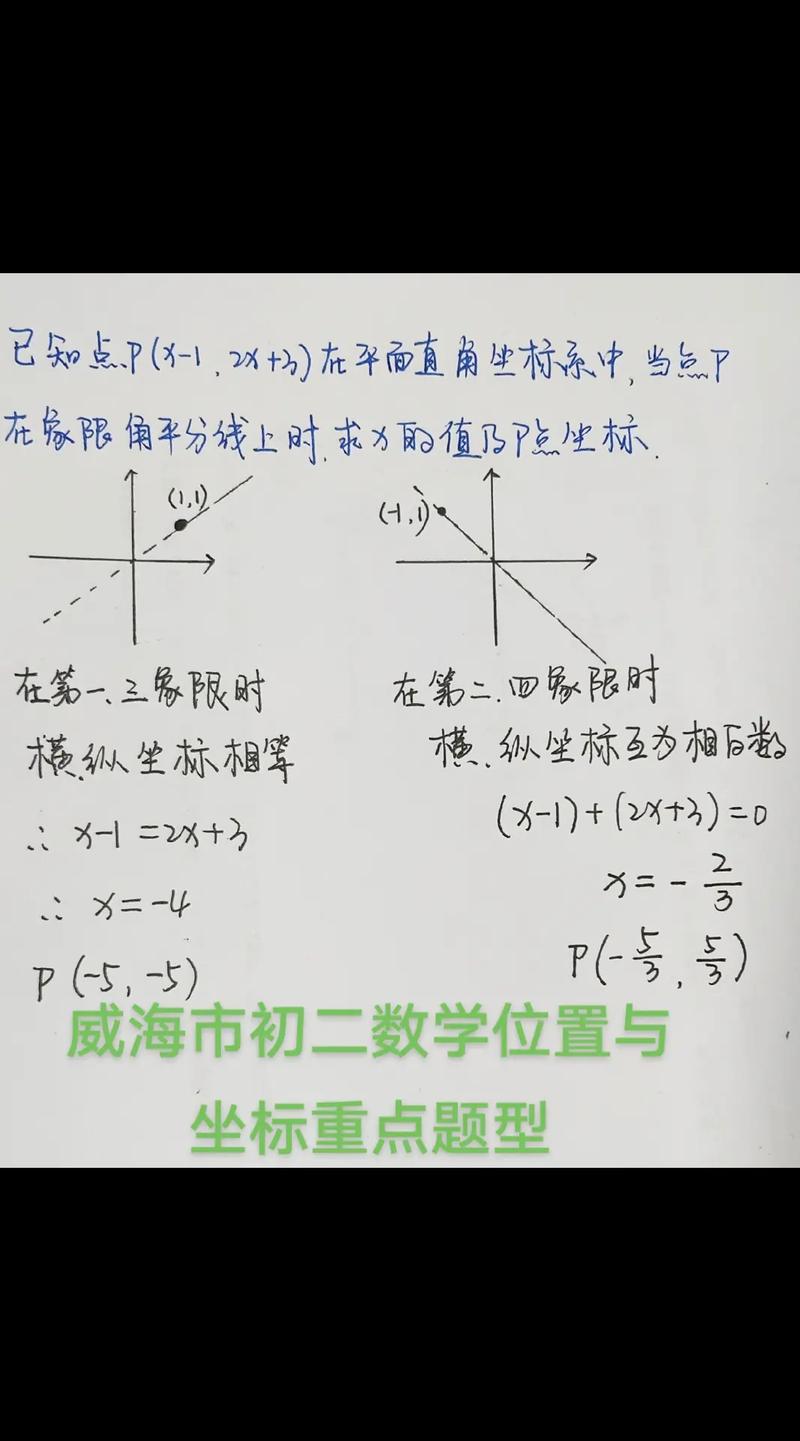 已知点P(x-1,2x+3)在平面直角坐标系中,当点P
在象限角平分线上时,求x的值及P点坐标.
(1,1)
在第一、三象限时
横、纵坐标相等
∴ x-1=2x+3
∴ x=-4
P(-5,-5)
(-1,1)
在第二、四象限时
横、纵坐标互为相反数
(x-1)+(2x+3)=0
x=-2/3
P(-5/3,5/3)
威海市初二数学位置与
坐标重点题型